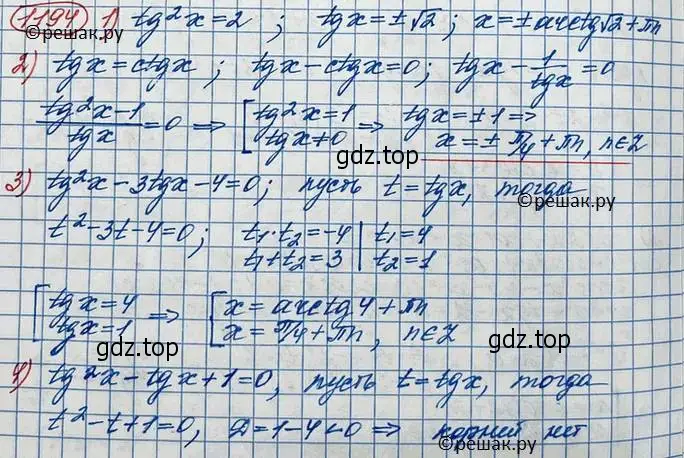 1194) 1) tg²x=2 ; tgx=±√2 ; x=±arctg√2+πn
©reшак.ру
2) tgx=ctgx ; tgx-ctgx=0 ; tgx-1/tgx=0
(tg²x-1)/tgx=0 => [tg²x=1 => tgx=±1 =>
tgx≠0 x=±π/4+πn, n∈Z
gdz.top
3) tg²x-3tgx-4=0; пусть t=tgx, тогда
©решак.ру
t²-3t-4=0; t₁·t₂=-4 | t₁=4
t₁+t₂=3 | t₂=1
[tgx=4 => [x=arctg4+πn
tgx=1 x=π/4+πn, n∈Z
gdz.top gdz.top
4) tg²x-tgx+1=0, пусть t=tgx, тогда
t²-t+1=0, D=1-4<0 => корней нет
©решак.ру